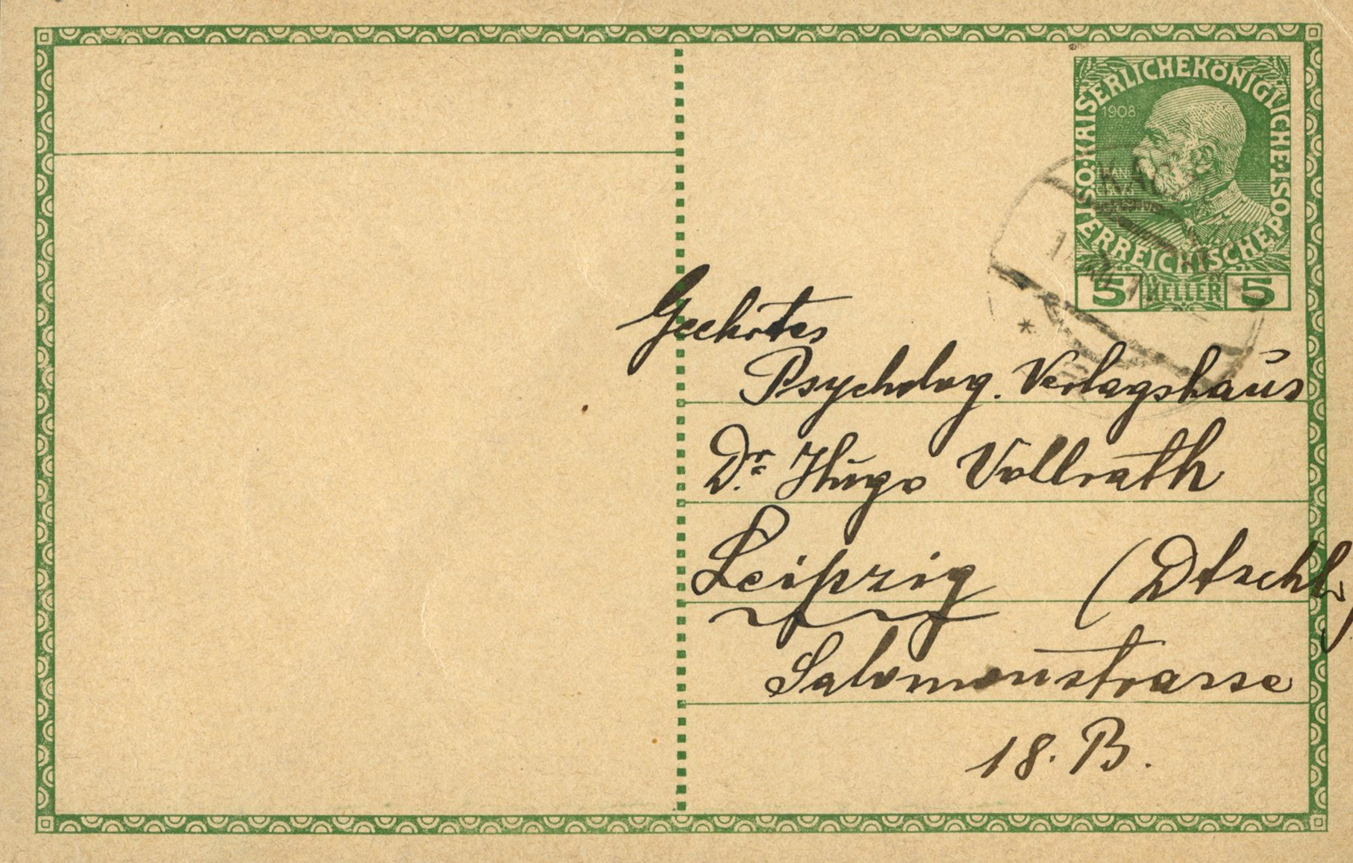 KAISERLICHE KÖNIGLICHE ÖSTERREICHISCHE POST
1908
5 HELLER 5
Geehrtes
Psycholog. Verlagshaus
Dr. Hugo Vollrath
Leipzig (Dtschl.)
Salomonstrasse
18. B.